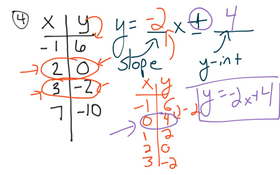 ④ x | y
-1 | 6
2 | 0
3 | -2
7 | -10
y = -2 x + 4
slope
y-int
x | y
-1 | 6
0 | 4
1 | 2
2 | 0
3 | -2
-2
y = -2x+4